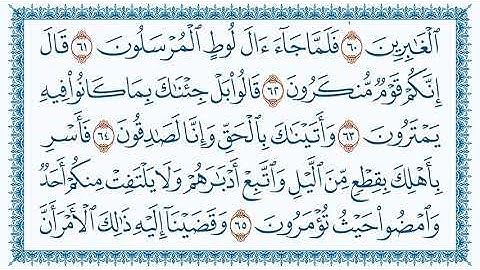 ٱلْغَٰبِرِينَ ٦٠ فَلَمَّا جَآءَ ءَالَ لُوطٍ ٱلْمُرْسَلُونَ ٦١ قَالَ
إِنَّكُمْ قَوْمٌ مُّنكَرُونَ ٦٢ قَالُوا۟ بَلْ جِئْنَٰكَ بِمَا كَانُوا۟ فِيهِ
يَمْتَرُونَ ٦٣ وَأَتَيْنَٰكَ بِٱلْحَقِّ وَإِنَّا لَصَٰدِقُونَ ٦٤ فَأَسْرِ
بِأَهْلِكَ بِقِطْعٍ مِّنَ ٱلَّيْلِ وَٱتَّبِعْ أَدْبَٰرَهُمْ وَلَا يَلْتَفِتْ مِنكُمْ أَحَدٌ
وَٱمْضُوا۟ حَيْثُ تُؤْمَرُونَ ٦٥ وَقَضَيْنَآ إِلَيْهِ ذَٰلِكَ ٱلْأَمْرَ أَنَّ